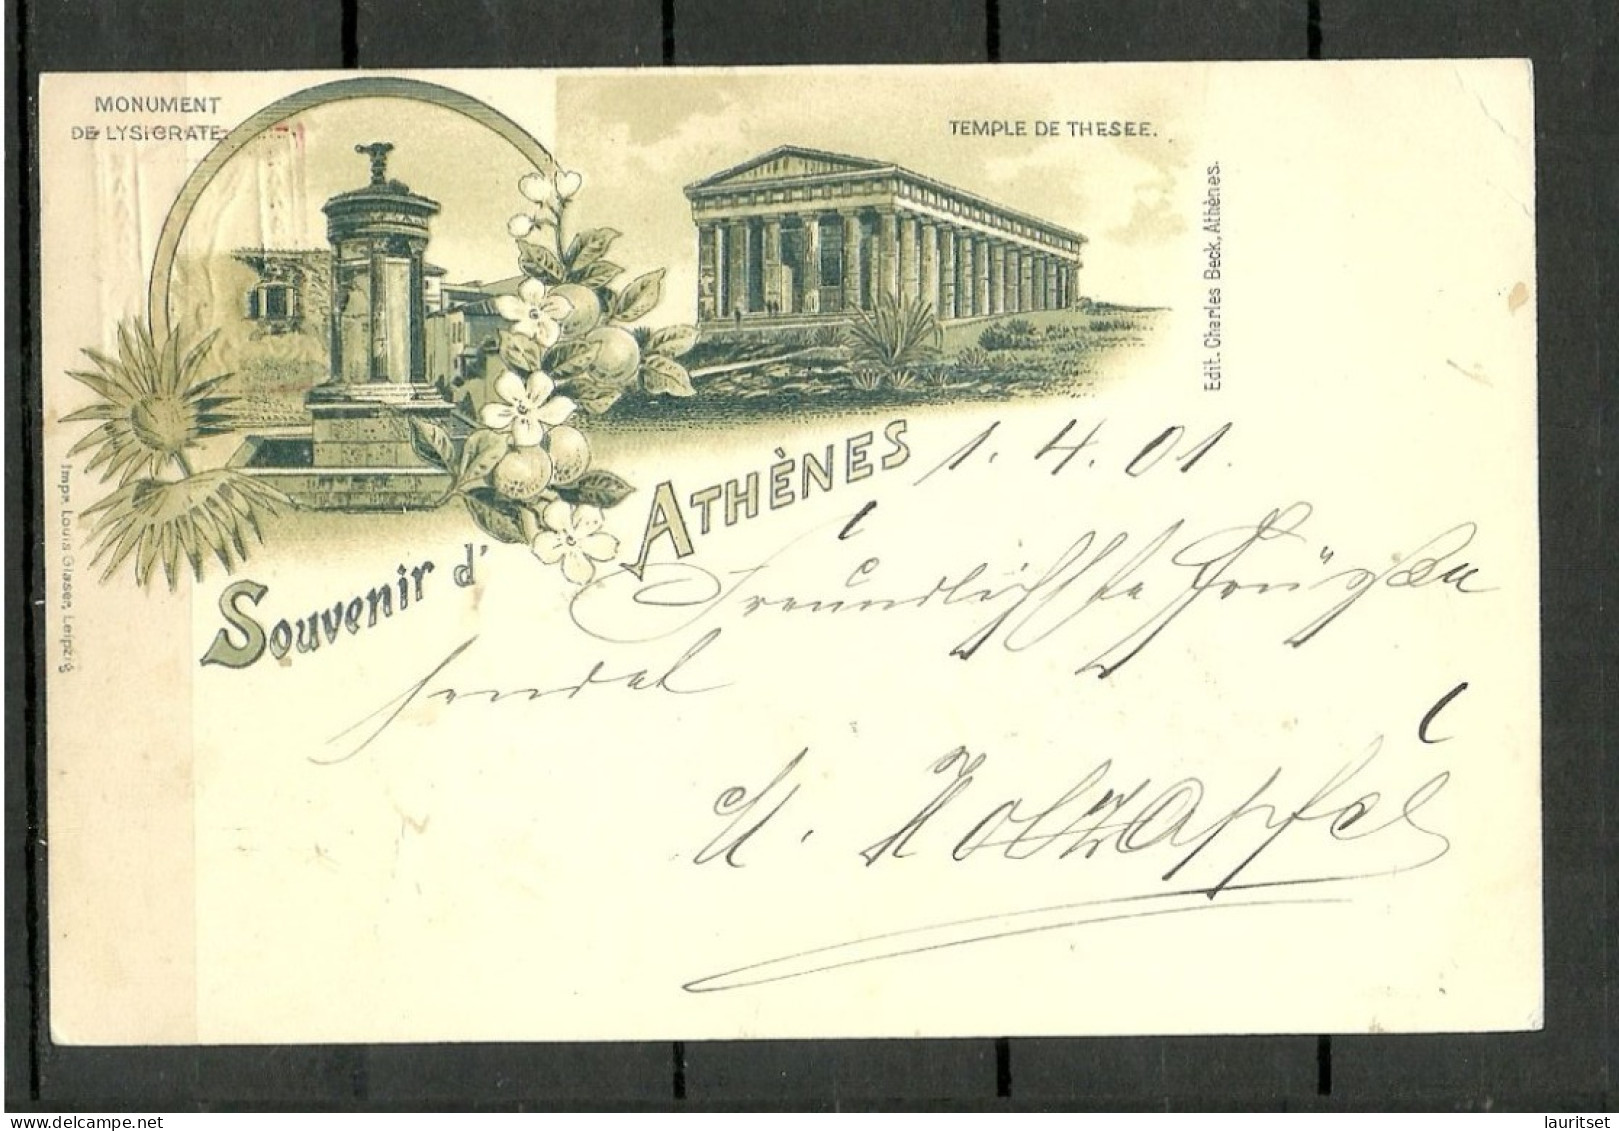 MONUMENT
DE LYSICRATE.
TEMPLE DE THESEE.
Edit. Charles Beck, Athènes.
Impr. Louis Glaser, Leipzig
Souvenir d' ATHÈNES
1. 4. 01.
Freundlichste Grüße
sendet
Holzapfel
lauritset